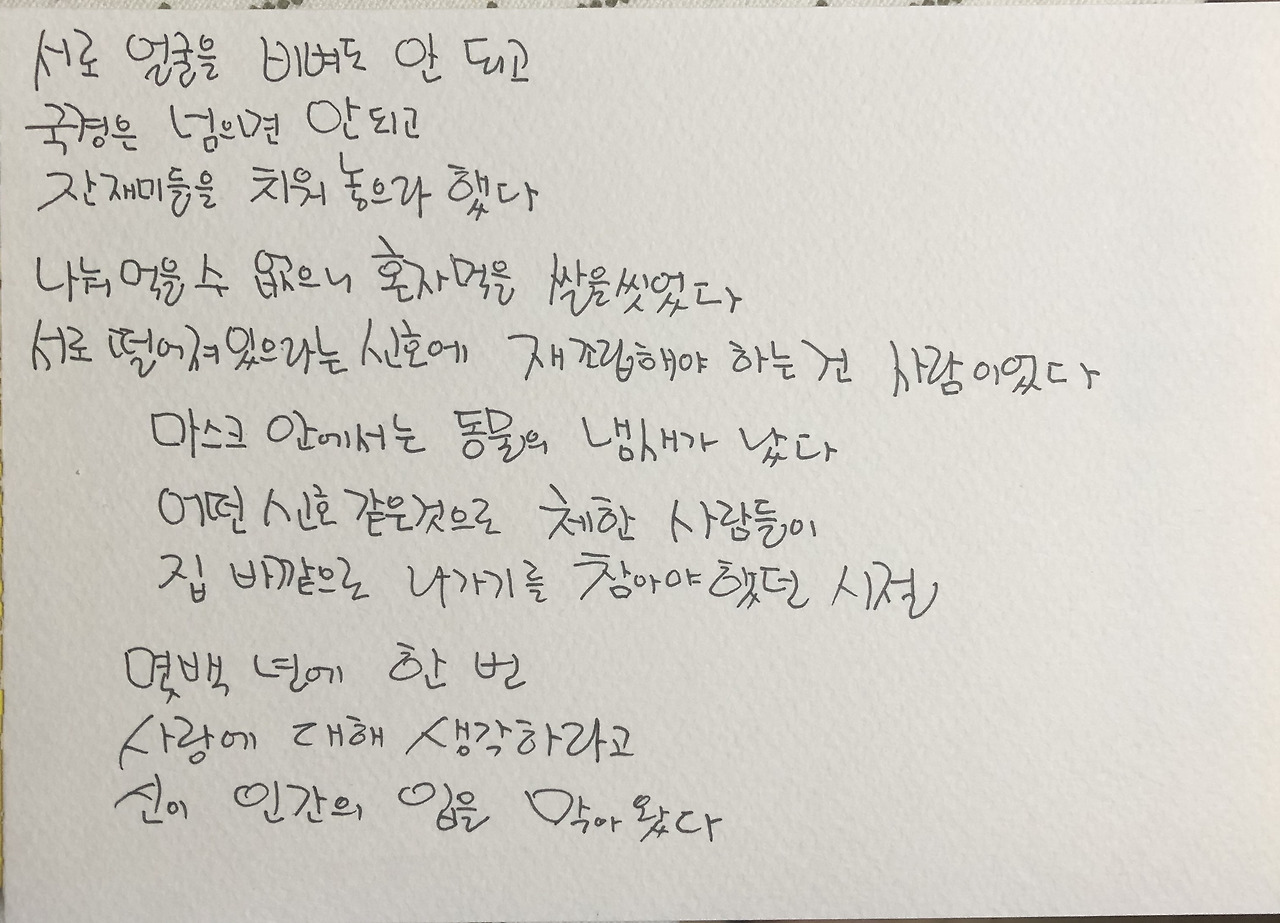 서로 얼굴을 비벼도 안 되고
국경은 넘으면 안되고
잔재미들을 치워 놓으라 했다
나눠 먹을 수 없으니 혼자먹을 쌀을 씻었다
서로 떨어져 있으라는 신호에 재조립해야 하는 건 사람이었다
마스크 안에서는 동물의 냄새가 났다
어떤 신호 같은것으로 체한 사람들이
집 바깥으로 나가기를 참아야 했던 시절
몇백 년에 한 번
사랑에 대해 생각하라고
신이 인간의 입을 막아 왔다